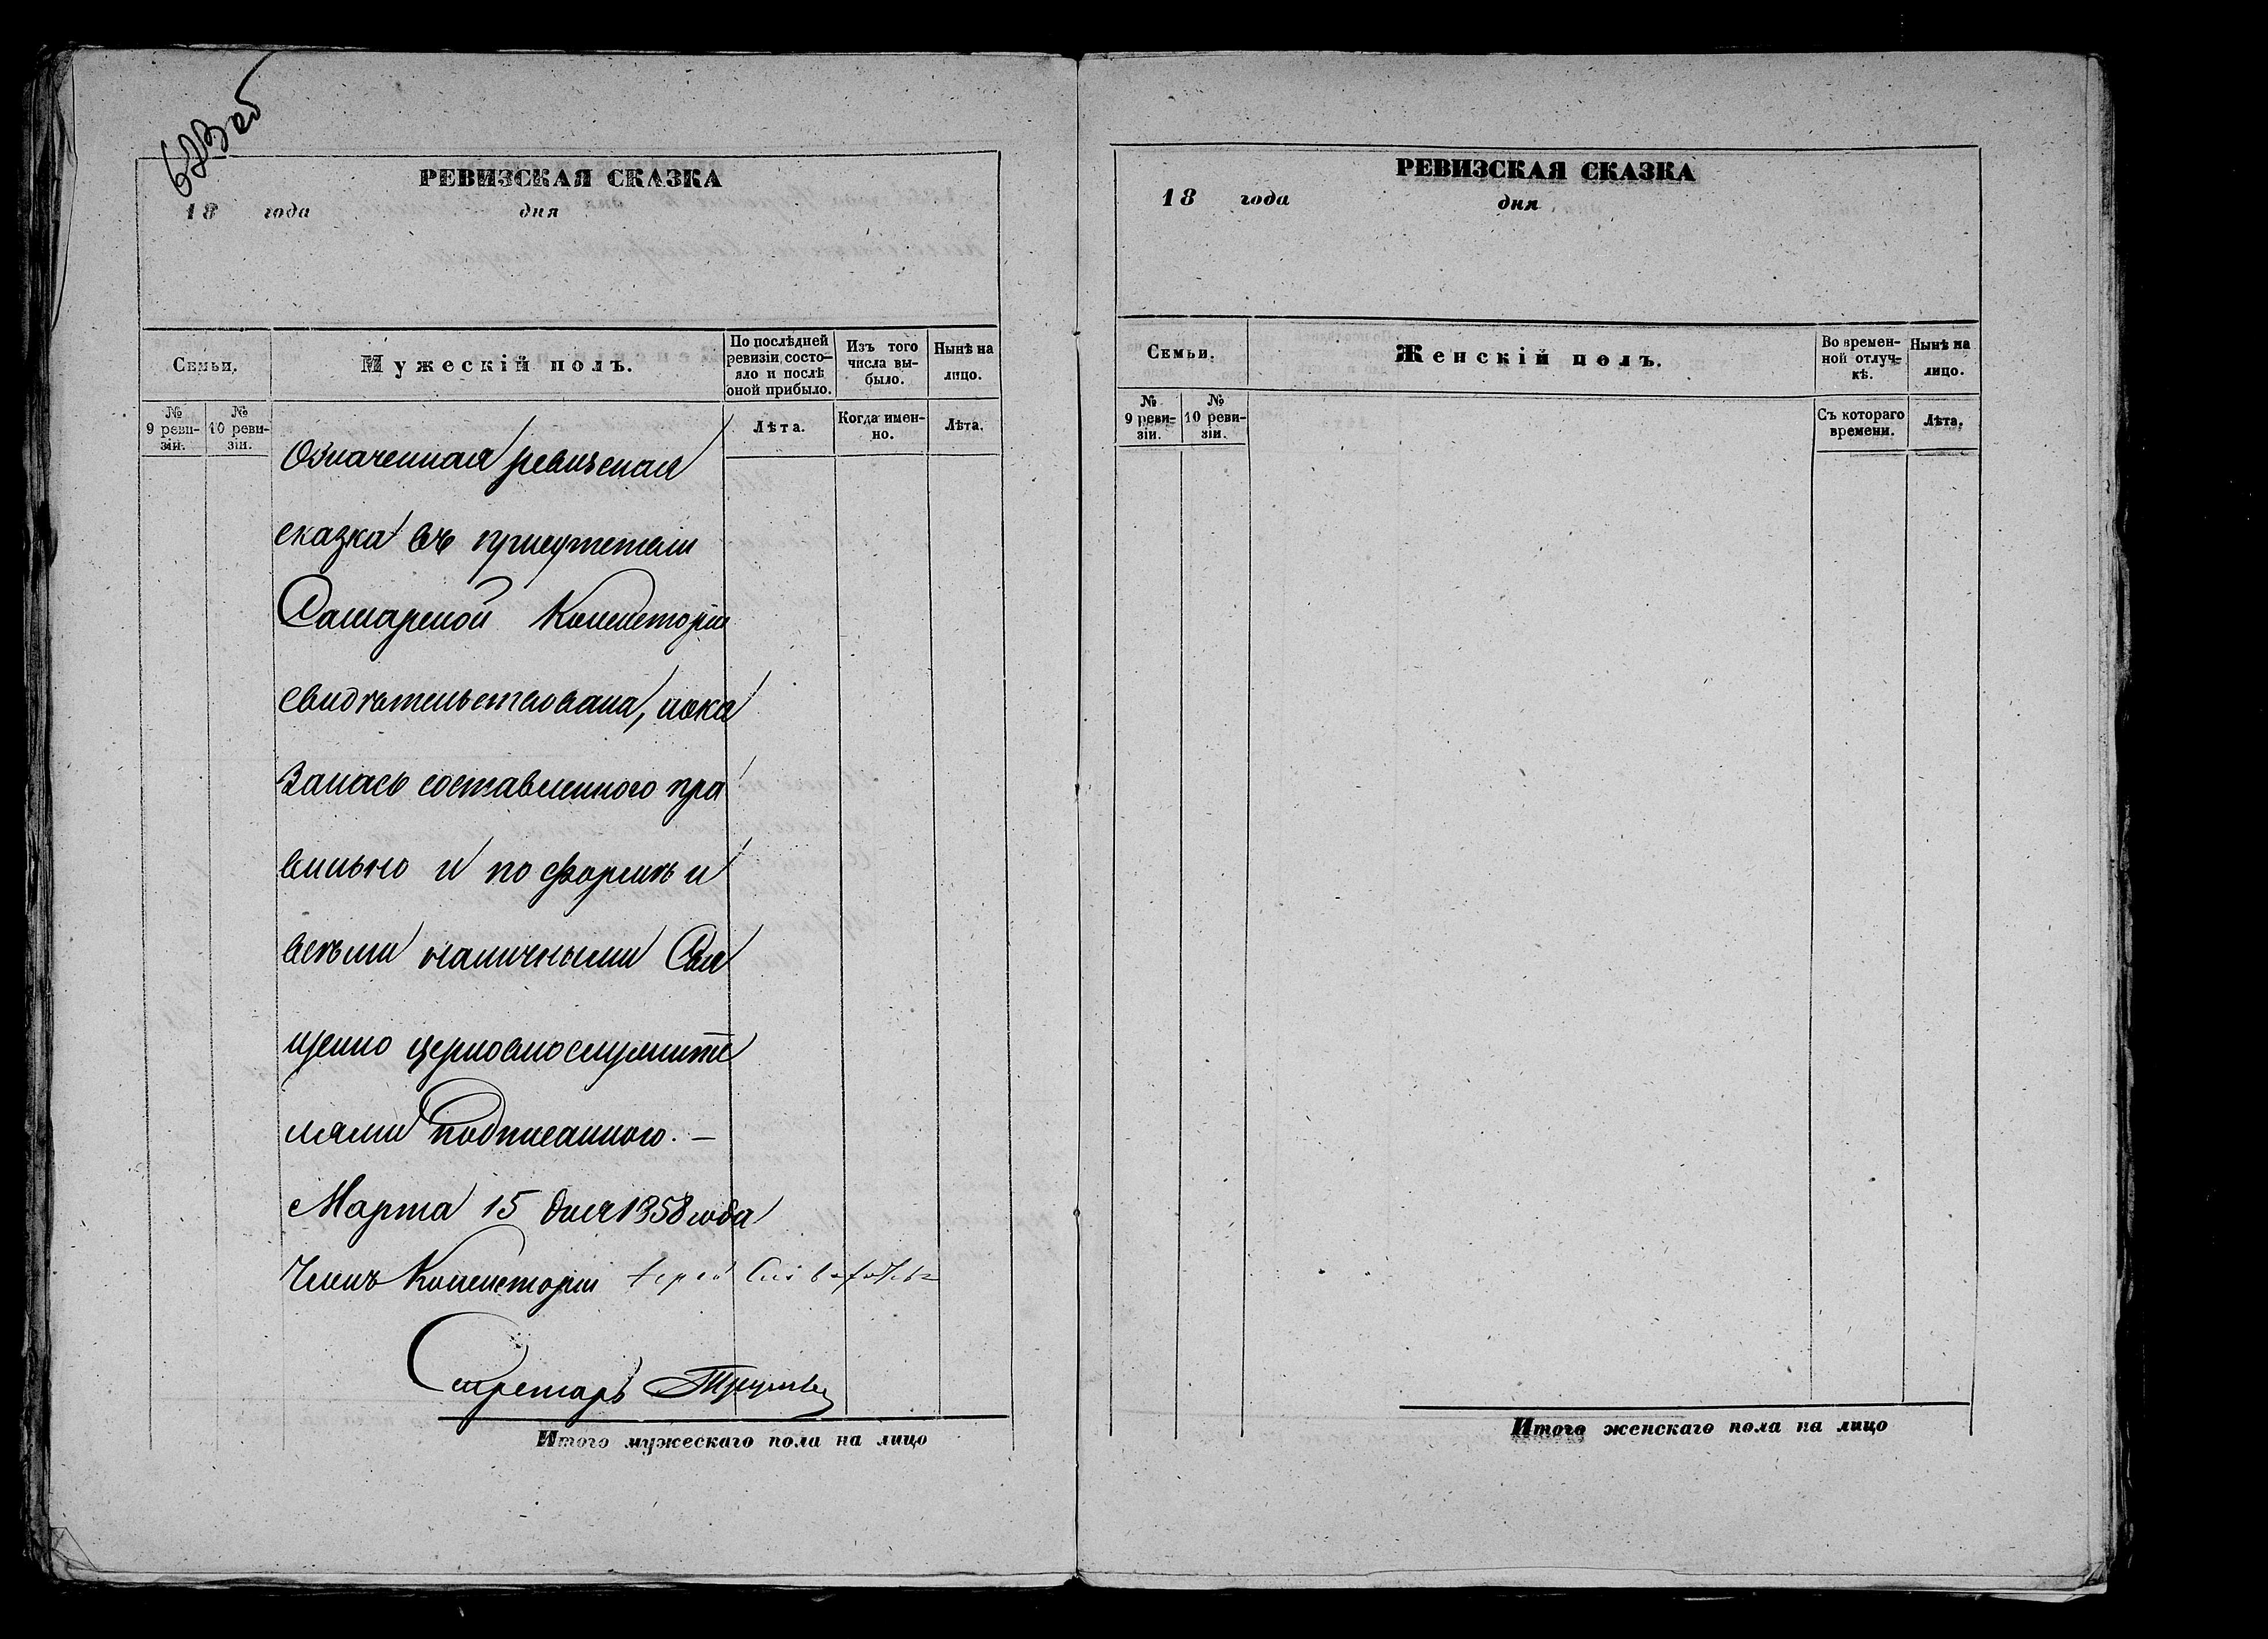 РЕВИЗСКАЯ СКАЗКА
18 года дня
Семьи.
Мужескій полъ.
По послѣдней ревизіи состо-
яло и послѣ оной прибыло.
Изъ того числа вы-
было.
Нынѣ на лицо.
№ 9 реви-
зіи.
№ 10 реви-
зіи.
Лѣта.
Когда имен-
но.
Лѣта.
Означенная ревизская
сказка въ присутствіи
Самарской Консисторіи
свидѣтельствована, пока
залась составленного пра
вильно и по формѣ и
всѣми наличными Свя
щенно церковнослужите
лями подписанного. —
Марта 15 дня 1858 года
Членъ Консисторіи
Секретарь
Итого мужескаго пола на лицо
РЕВИЗСКАЯ СКАЗКА
18 года дня
Семьи.
Женскій полъ.
Во времен-
ной отлуч-
кѣ.
Нынѣ на лицо.
№ 9 реви-
зіи.
№ 10 реви-
зіи.
Съ котораго времени.
Лѣта.
Итого женскаго пола на лицо